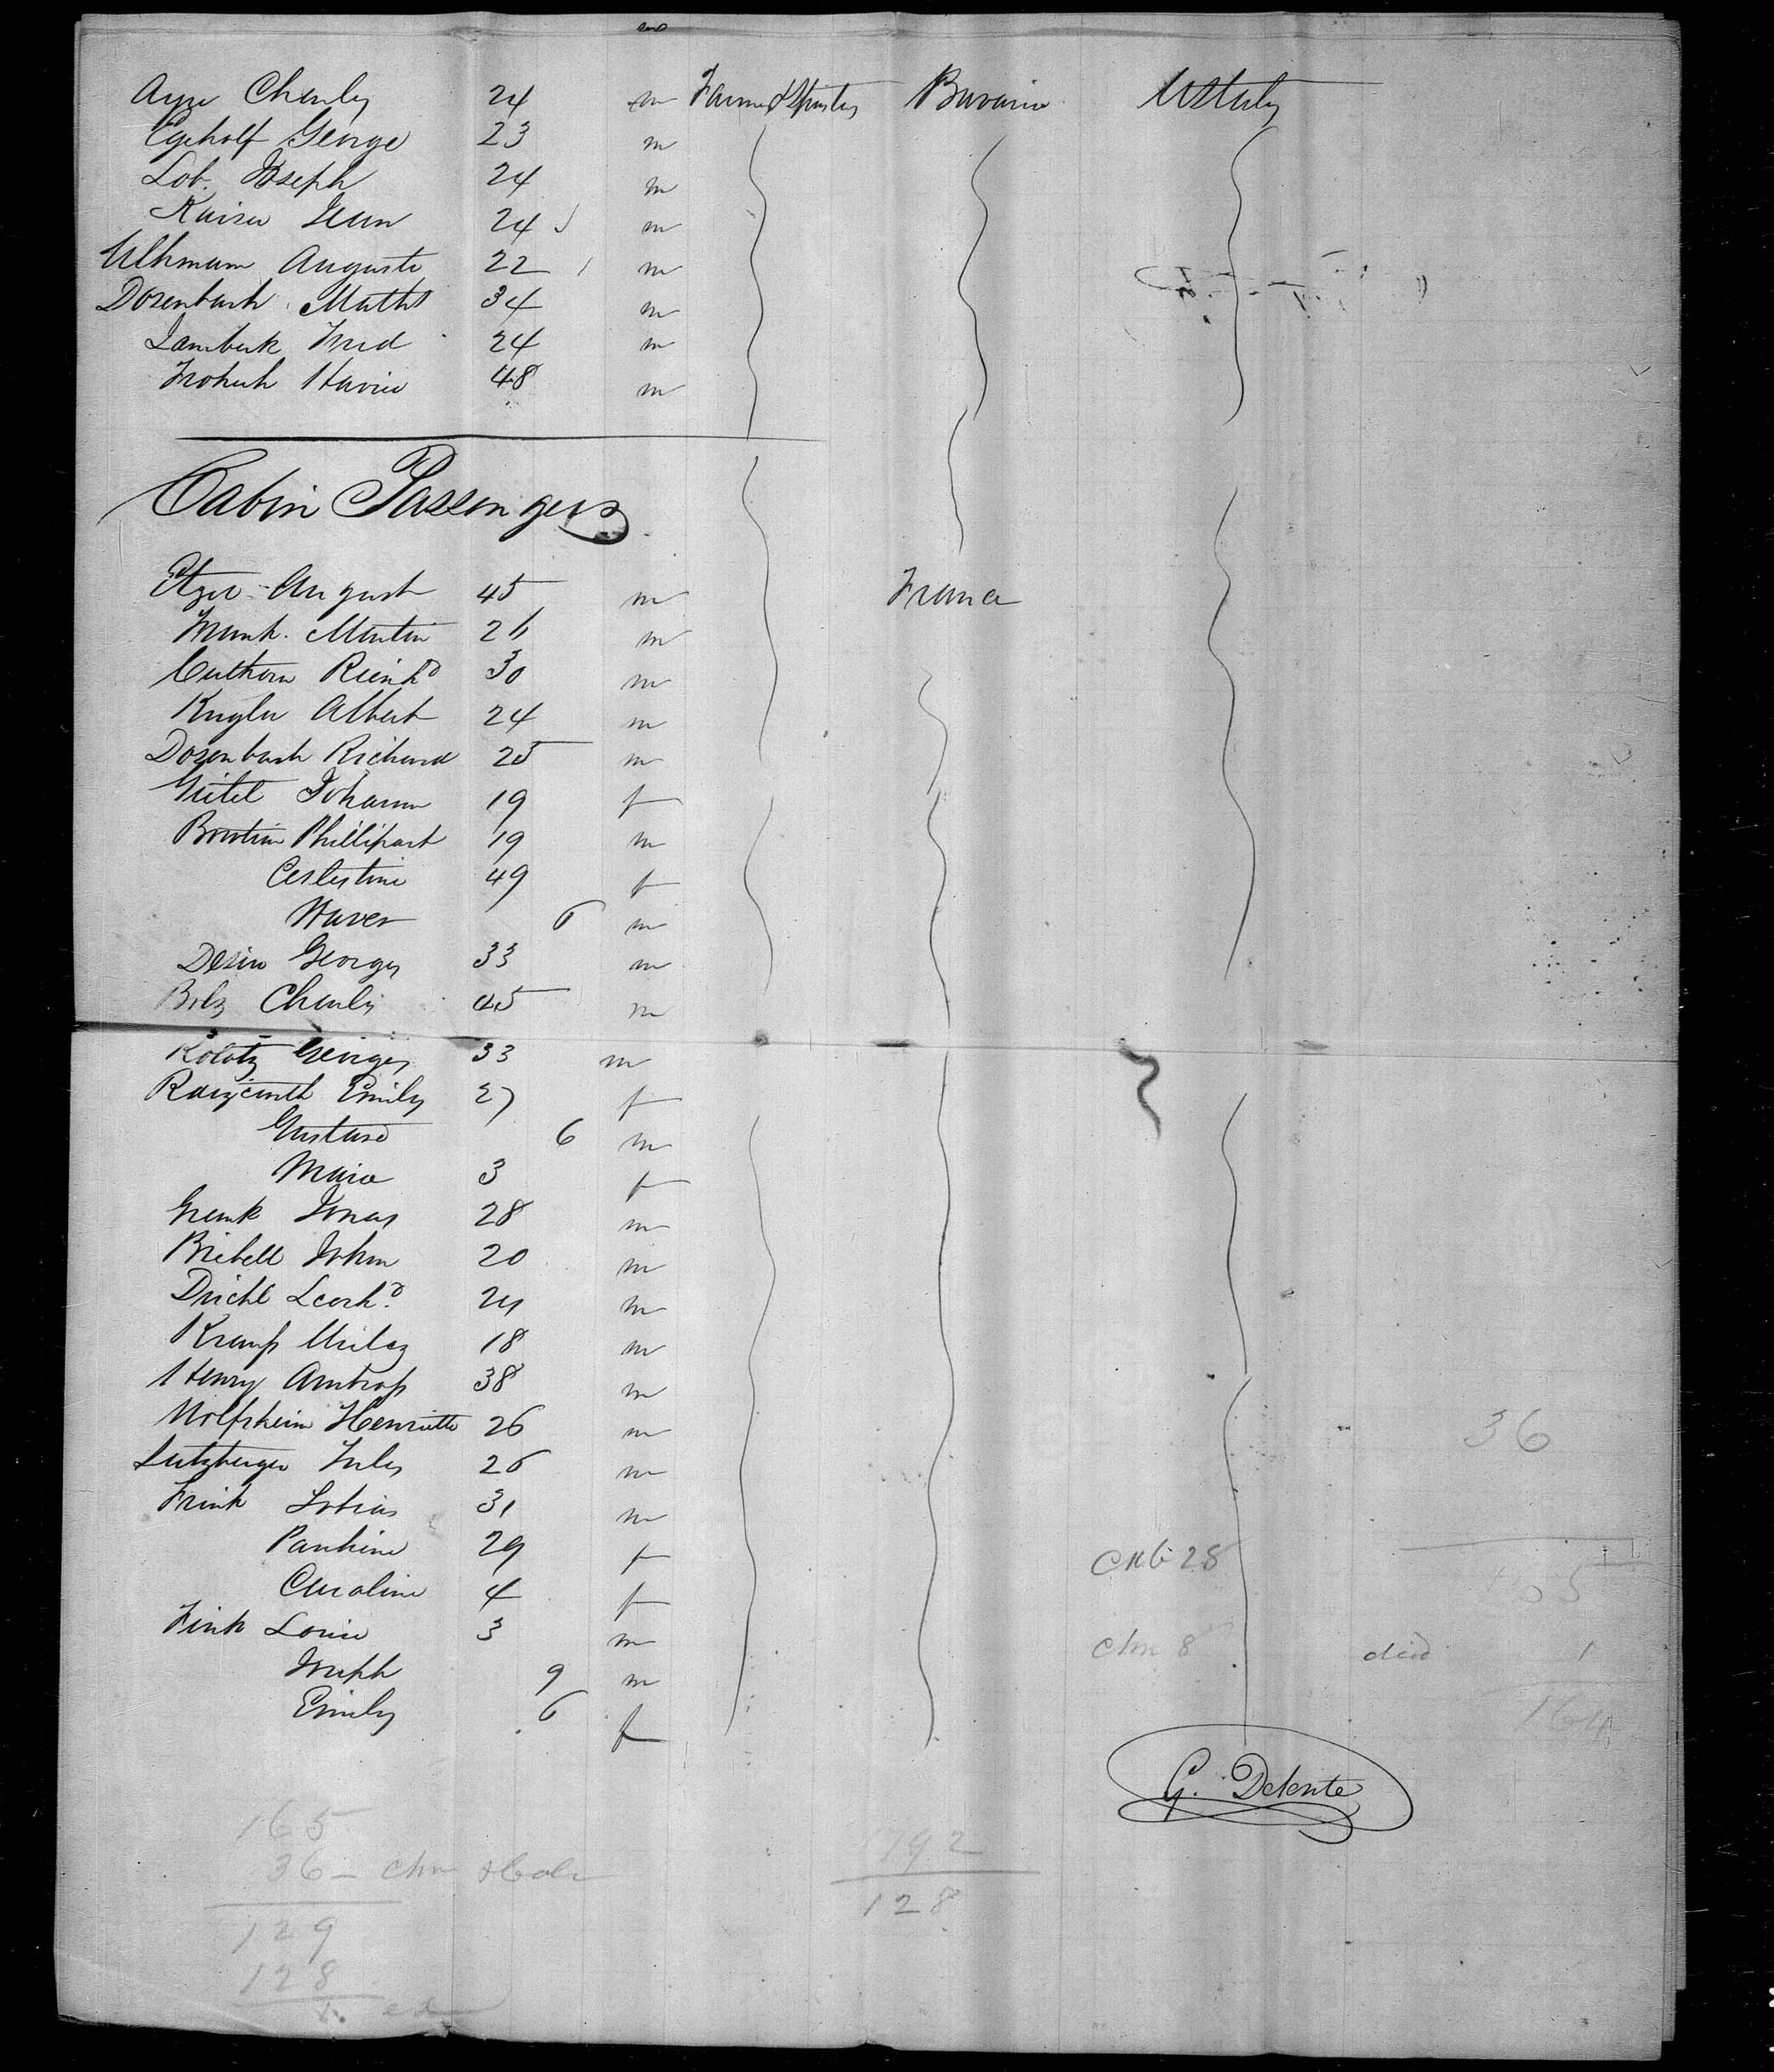 Charly 24 m Farmers & Bavaria U Staly
Egeholf George 23 m
Lob. Joseph 24 m
Kaiser Jean 24 m
Uhlmann Auguste 22 m
Dosenbach Maths 34 m
Lambeck Fred 24 m
Froheih Xavier 48 m
Cabin Passengers
Etzer August 45 m France
Frank. Martin 26 m
Cuthorn Rienhd 30 m
Kugler Albert 24 m
Dosenbach Richard 25 m
Gritel Johanna 19 f
Phillipart 19 m
Celestine 49 f
Xaver 6 m
Desire Georges 33 m
Bolz Charles 45 m
Kolotz Georges 33 m
Emily 27 f
Gustave 6 m
Maria 3 f
Jonas 28 m
Briebell John 20 m
Dirichl Leorhd. 24 m
Kramp 18 m
Henry 38 m
Wolfsheim Henriette 26 m
Lutzberger Jules 26 m
Frink Tobias 31 m
Pauhine 29 f
Caroline 4 f
Fink Louise 3 m
Joseph 9 m
Emily 6 f
36
28
8 died 1
164
G. Delente
165
36 –
129
128
1792
128